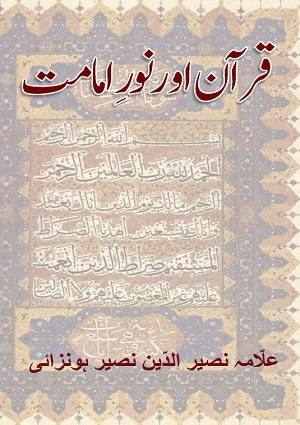 قرآن اور نورِ امامت
بسم الله الرحمن الرحيم
الحمد لله رب العالمين الرحمن
الرحيم مالك يوم الدين اياك نعبد
واياك نستعين اهدنا الصراط
المستقيم صراط الذين انعمت
عليهم غير المغضوب عليهم ولا الضالين
علّامہ نصیر الدّین نصیر ہونزائی